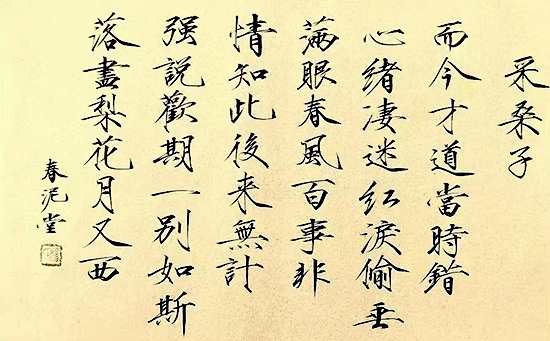 采桑子
而今才道當時錯
心緒凄迷紅淚偷垂
满眼春風百事非
情知此後来無計
强説歡期一别如斯
落盡梨花月又西
春泥堂